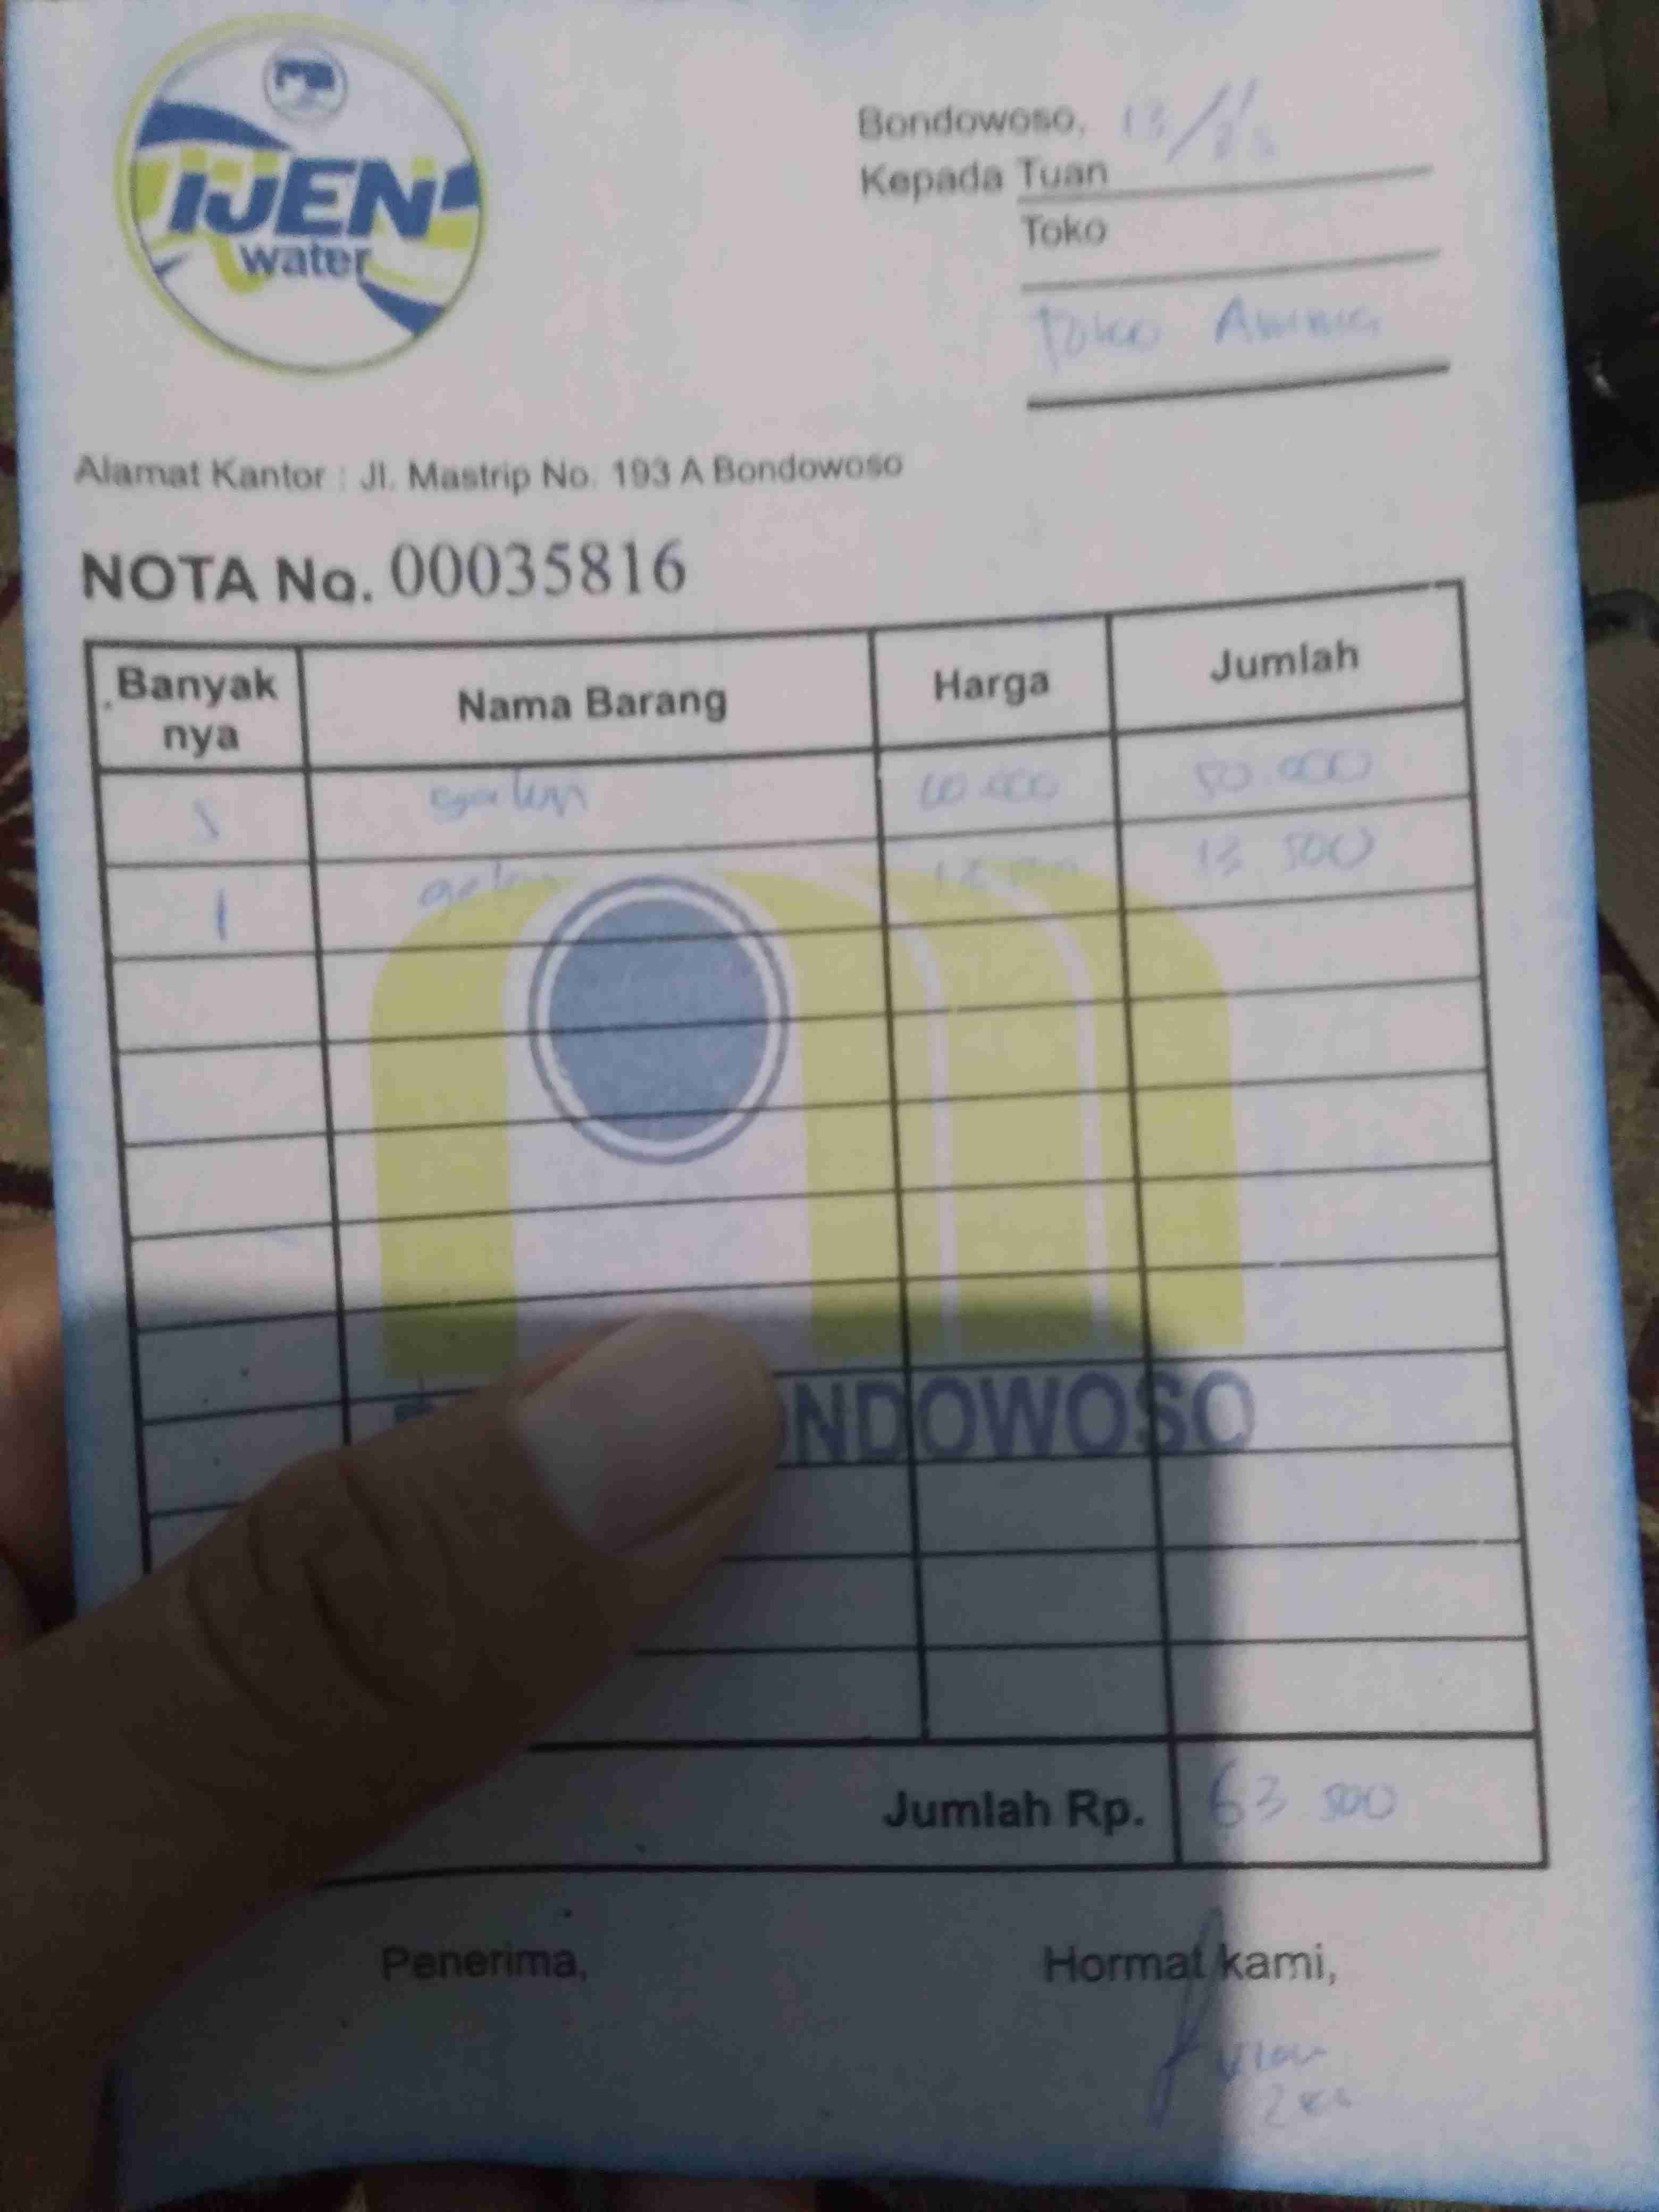 IJEN
water
Bondowoso, 13/
Kepada Tuan
Toko
Toko
Alamat Kantor : Jl. Mastrip No. 193 A Bondowoso
NOTA No. 00035816
Banyak nya Nama Barang Harga Jumlah
5 galon 10.000 50.000
1 galon 13 500
NDOWOSO
Jumlah Rp. 63 500
Penerima, Hormat kami,